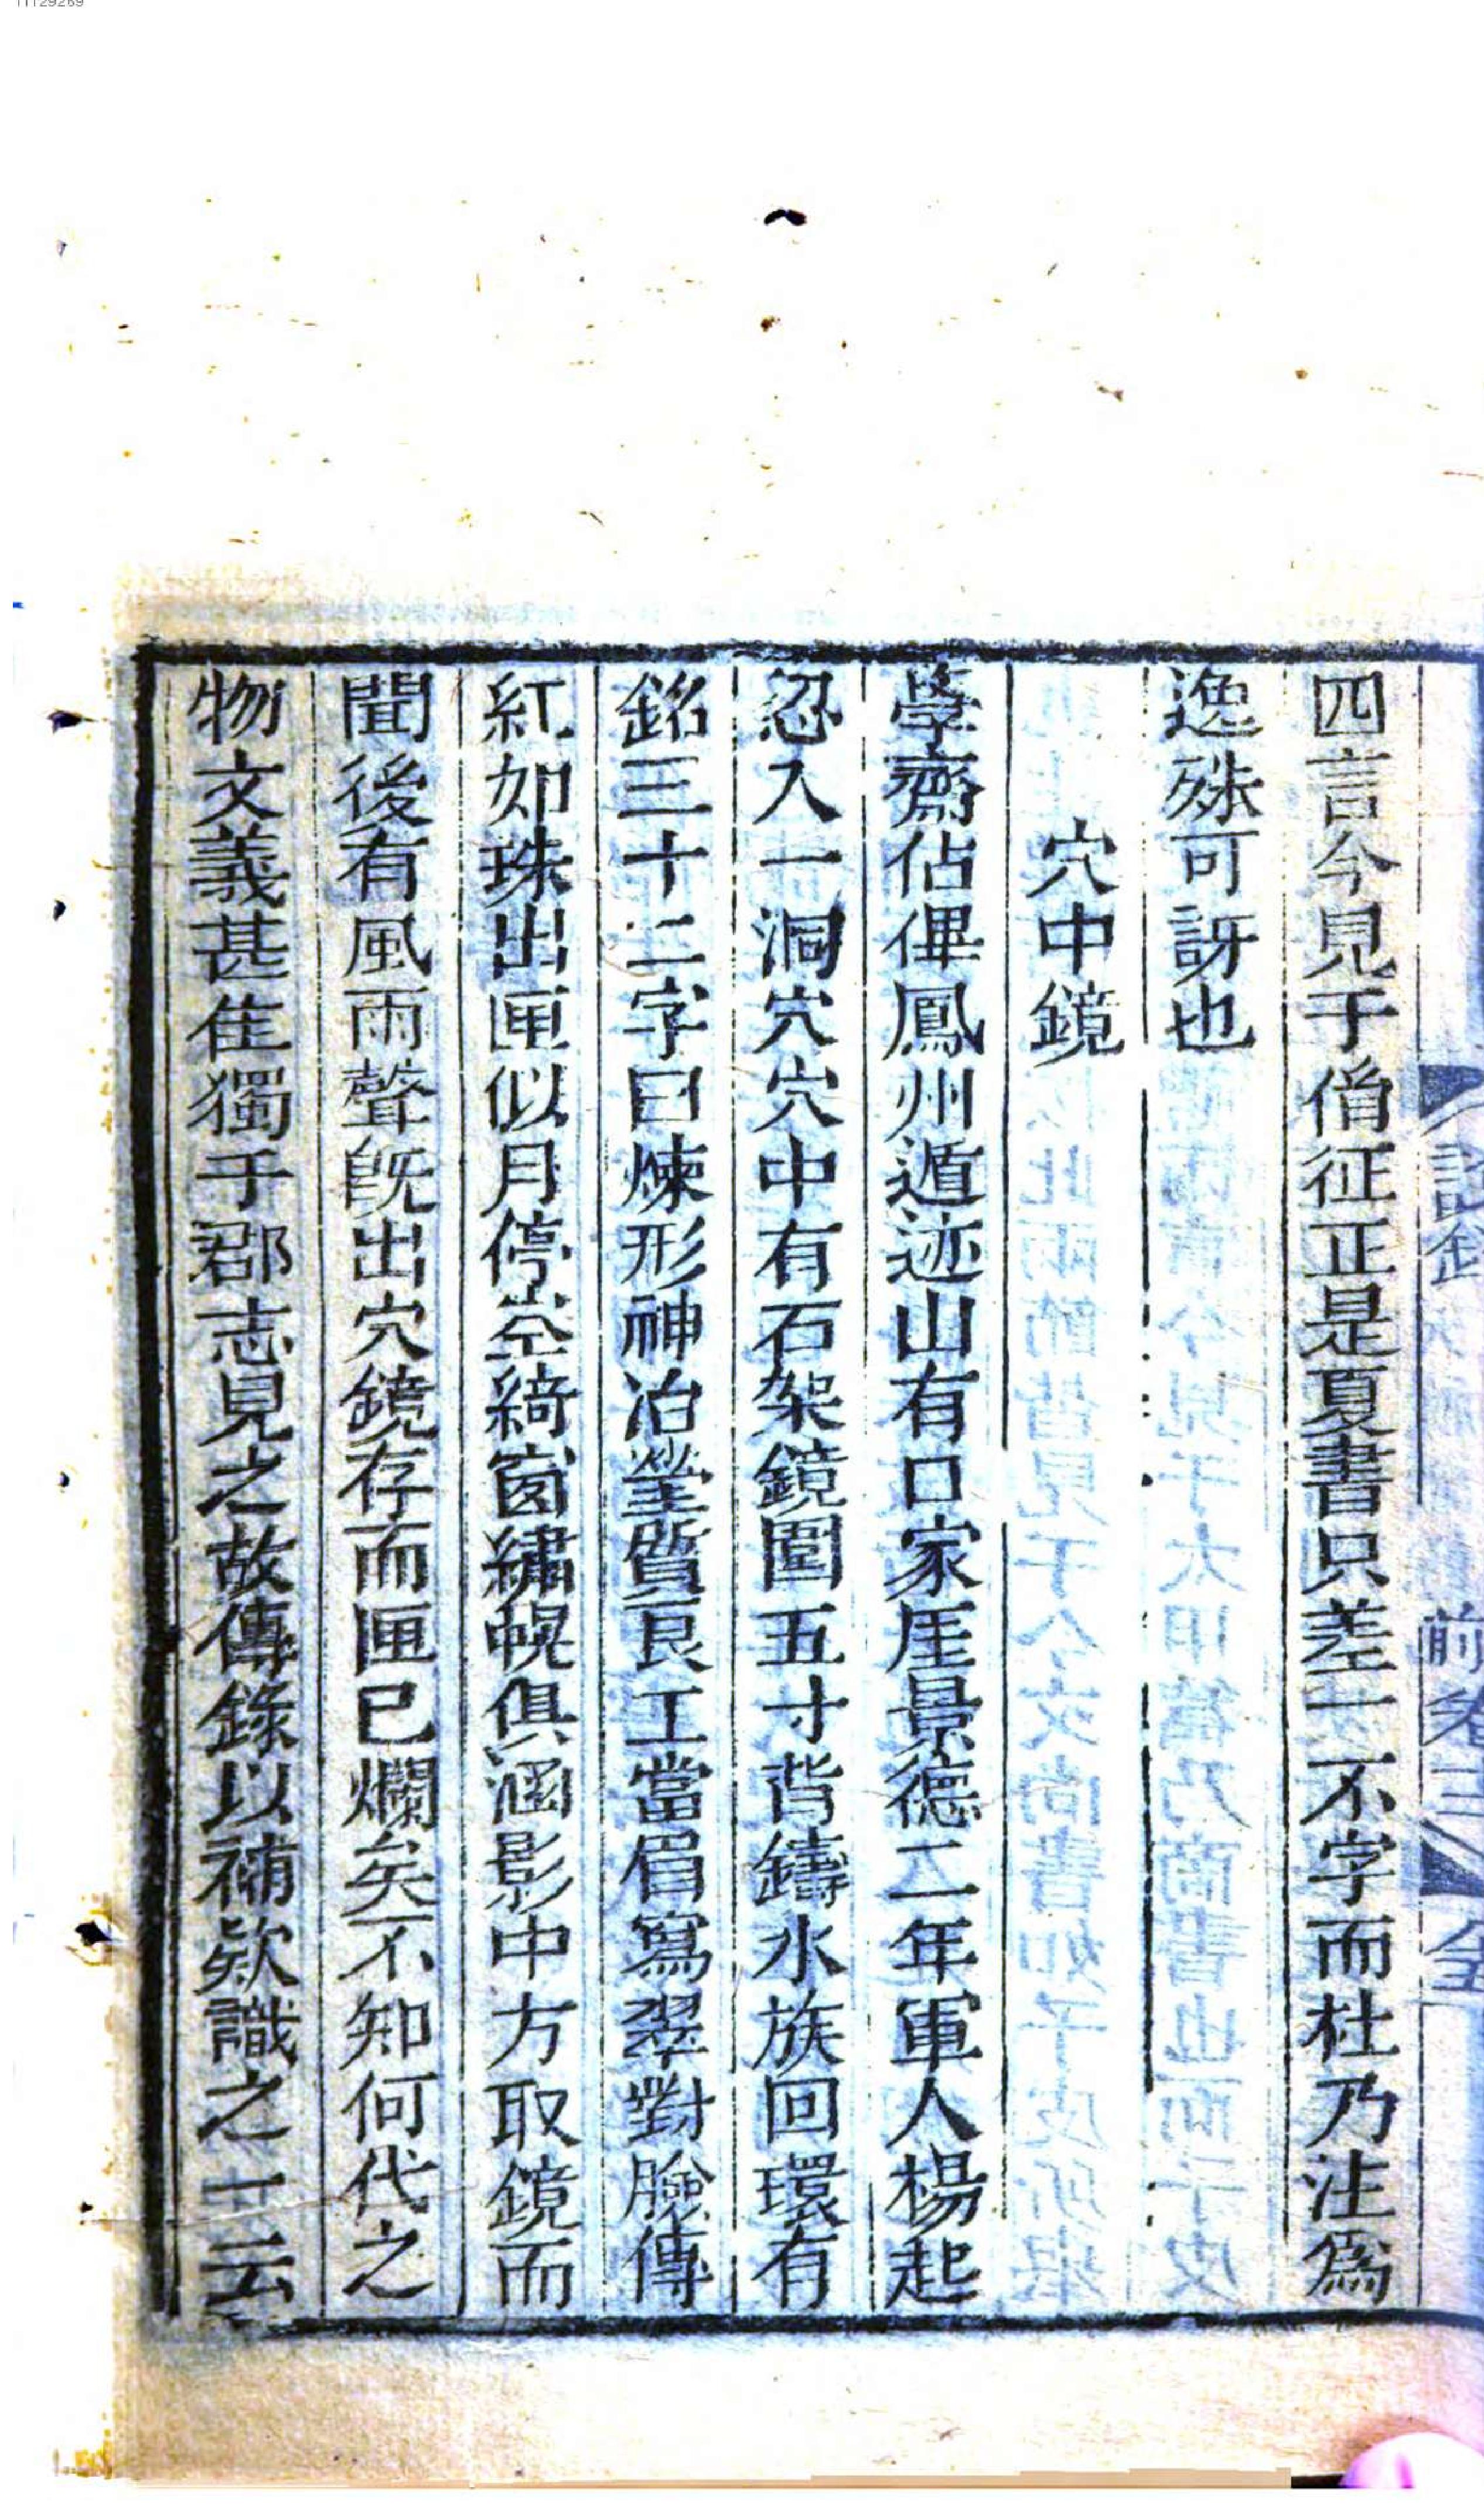 四言今見于偹征正是夏書只差一不字而杜乃注爲
逸殊可訝也
穴中鏡
學齋佔俾鳳州遁迹山有口家厓景德二年軍人楊起
忍入一洞穴穴中有石架鏡圍五寸背鑄水族回環有
銘三十二字曰煉形神冶瑩質良工當眉寫翠對臉傳
紅如珠出匣似月停空綺窗繡幌俱涵影中方取鏡而
聞後有風雨聲旣出穴鏡存而匣已爛矣不知何代之
物文義甚佳獨于郡志見之故傳錄以補欵識之一云
前卷三
全
11129269